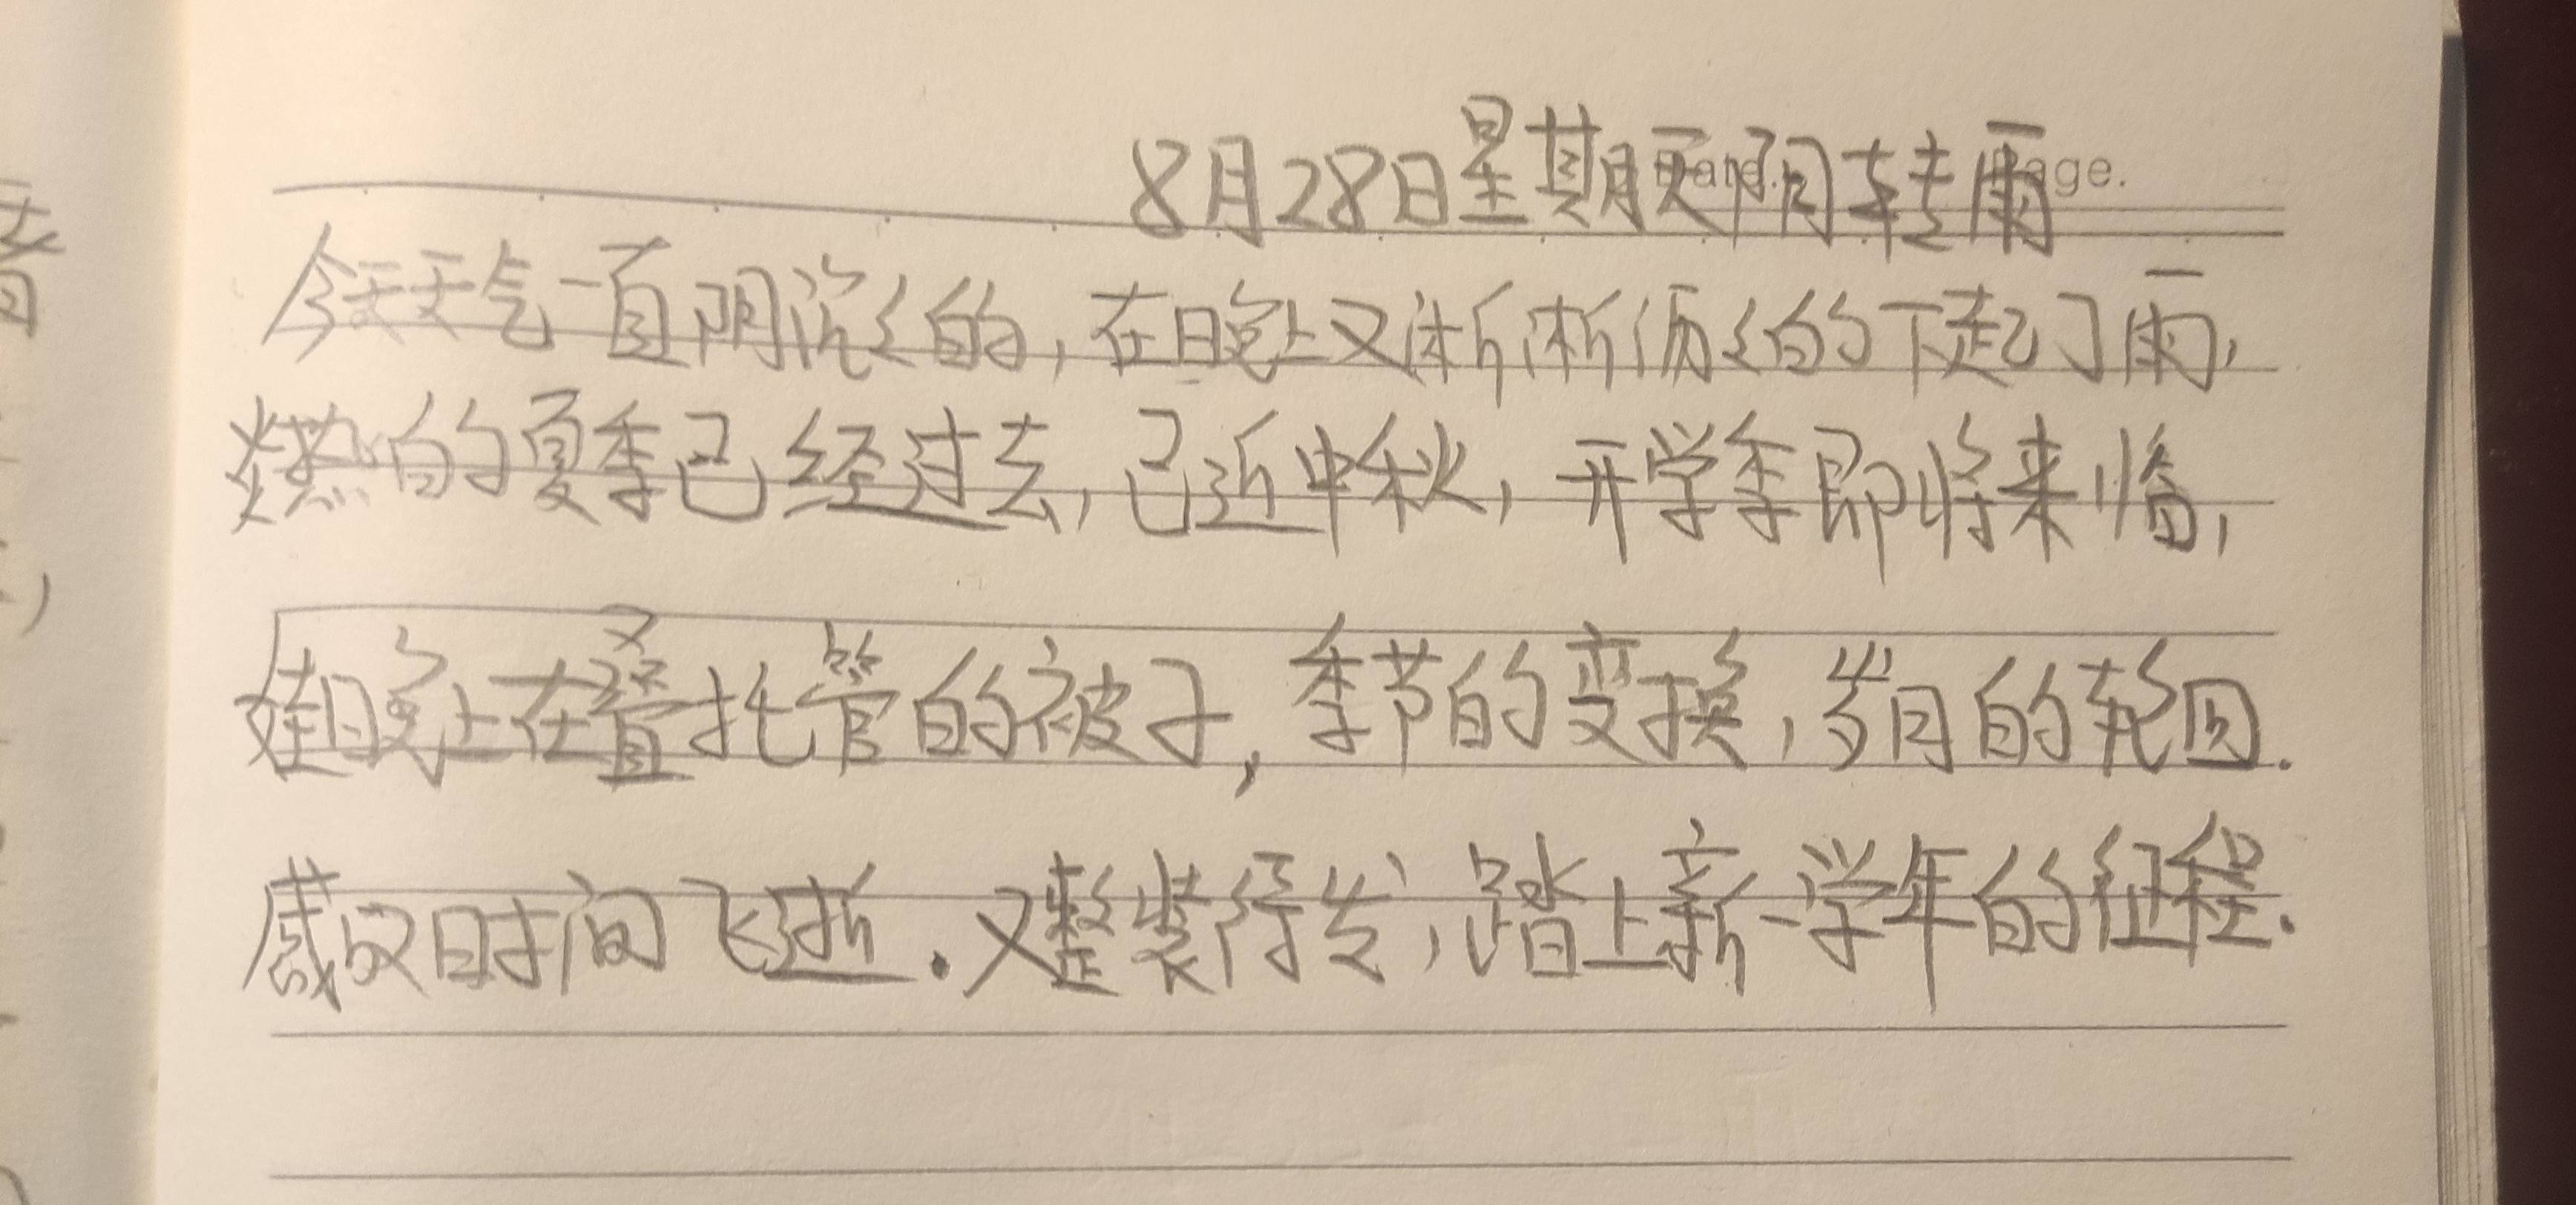 8月28日星期天阴转雨
今天天气一直阴沉沉的,在晚上又淅淅沥沥的下起了雨,
燥热的夏季已经过去,已近中秋,开学季即将来临,
娃晚上在叠托管的被子,季节的变换,岁月的轮回.
感叹时间飞逝.又整装待发,踏上新一学年的征程.